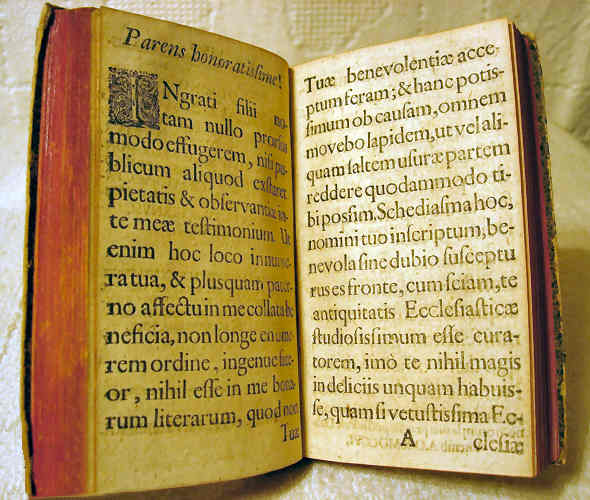 Parens honoratissime!
INgrati filii no-
tam nullo prorsus
modo effugerem, nisi pu-
blicum aliquod exstaret
pietatis & observantiæ in
te meæ testimonium. Ut
enim hoc loco innume-
ra tua, & plusquam pater-
no affectu in me collata be
neficia, non longe enume-
rem ordine, ingenue fate-
or, nihil esse in me bona-
rum literarum, quod non
Tuæ
Tuæ benevolentiæ acce-
ptum feram; & hanc potis-
simum ob causam, omnem
movebo lapidem, ut vel ali-
quam saltem usuræ partem
reddere quodammodo ti-
bi possim. Schediasma hoc,
nomini tuo inscriptum, be-
nevola sine dubio susceptu
rus es fronte, cum sciam, te
antiquitatis Ecclesiasticæ
studiosissimum esse cura-
torem, imò te nihil magis
in deliciis unquam habuis-
se, quam si vetustissima Ec-
A clesiæ